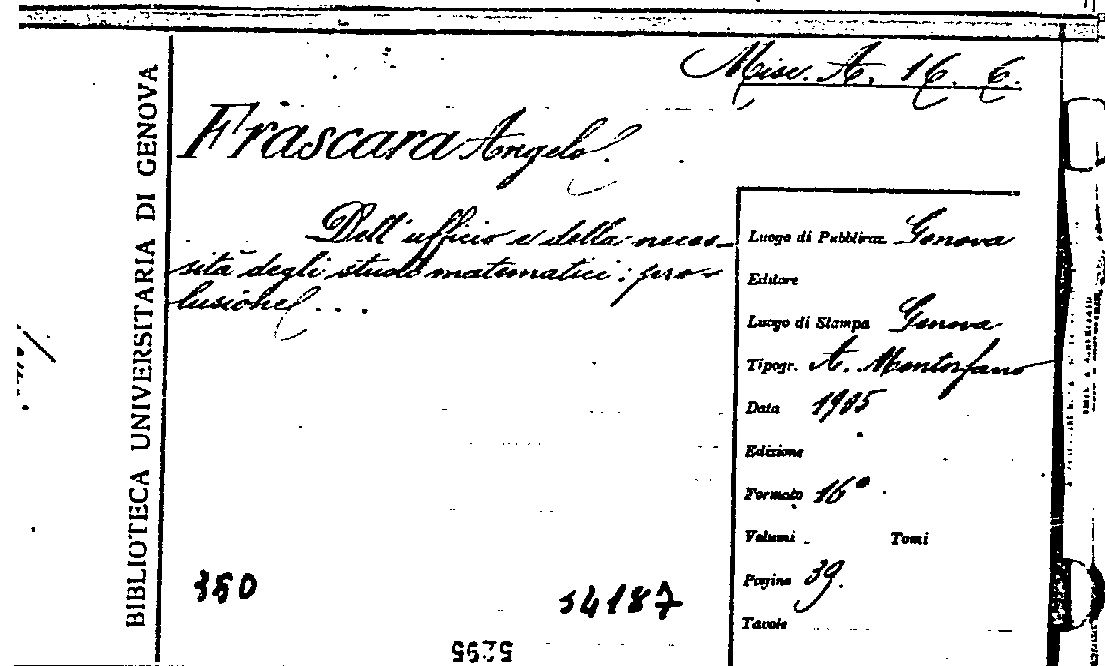 Misc. A. 16. 6.
BIBLIOTECA UNIVERSITARIA DI GENOVA
Frascara Angelo.
Dell'ufficio e della neces-
sità degli studi matematici: pro-
lusione ...
Luogo di Pubblicaz. Genova
Editore
Luogo di Stampa Genova
Tipogr. A. Montorfano
Data 1905
Edizione
Formato 16°
Volumi Tomi
Pagine 39.
Tavole
350
54187